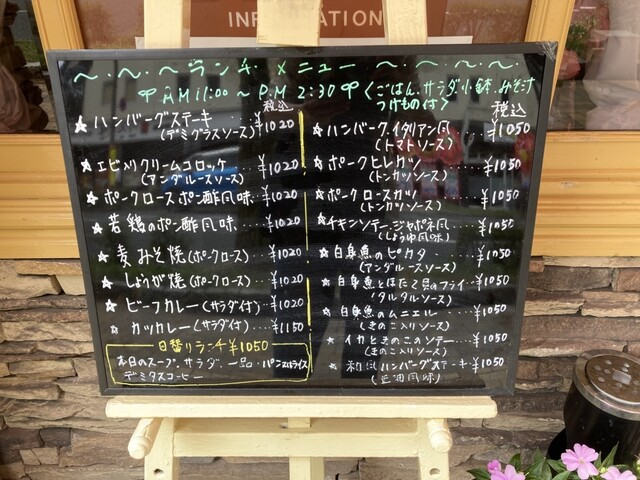 INFORMATION
~・~・~ランチ メニュー ~・~・~・~
AM 11:00 ~ P.M 2:30 <ごはん、サラダ、小鉢、みそ汁
つけもの付>
税込
☆ハンバーグステーキ ¥1020
(デミグラスソース)
☆エビ入りクリームコロッケ ¥1020
(アンダルースソース)
☆ポークロースポン酢風味 ‥ ¥1020
☆若鶏のポン酢風味 ‥‥ ¥1020
☆麦みそ焼(ポークロース) ‥ ¥1020
☆しょうが焼(ポークロース) ‥ ¥1020
☆ビーフカレー(サラダ付) ‥ ¥1020
☆カツカレー(サラダ付) ‥‥ ¥1150
日替りランチ ¥1050
本日のスープ、サラダ、一品・パン又はライス
デミタスコーヒー
税込
☆ハンバーグ、イタリアン風 ‥ ¥1050
(トマトソース)
☆ポークヒレカツ ‥‥ ¥1050
(トンカツソース)
☆ポークロースカツ ‥‥ ¥1050
(トンカツソース)
☆チキンソテー、ジャポネ風 ‥ ¥1050
(しょうゆ風味)
☆白身魚のピカタ ‥‥ ¥1050
(アンダルースソース)
☆白身魚とほたて貝のフライ ¥1050
(タルタルソース)
☆白身魚のムニエル ‥‥ ¥1050
(きのこ入りソース)
☆イカときのこのソテー ‥‥ ¥1050
(きのこ入りソース)
☆和風ハンバーグステーキ ¥1050
(正油風味)